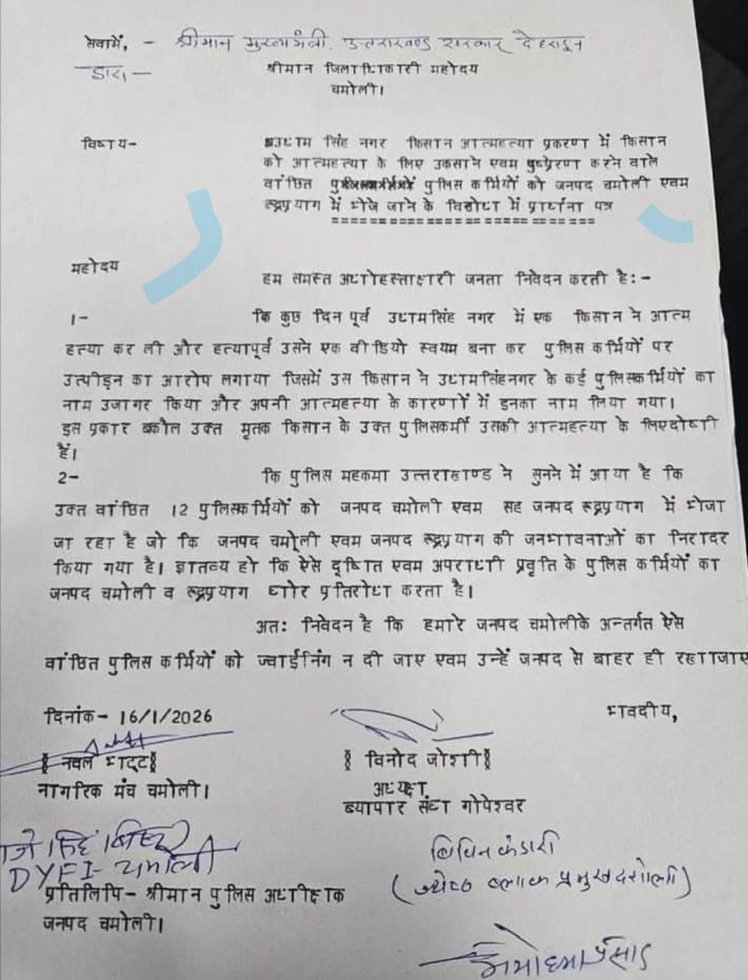 सेवामें, - श्रीमान मुख्यमंत्री, उत्तराखण्ड सरकार देहरादून
द्वारा -
श्रीमान जिलाधिकारी महोदय
चमोली।
विषय-
उधम सिंह नगर किसान आत्महत्या प्रकरण में किसान
को आत्महत्या के लिए उकसाने एवम दुष्प्रेरण करने वाले
वांछित पुलिस कर्मियों को जनपद चमोली एवम
रूद्रप्रयाग में भेजे जाने के विरोध में प्रार्थना पत्र
महोदय
हम समस्त अधोहस्ताक्षरी जनता निवेदन करती है:-
1-
कि कुछ दिन पूर्व उधमसिंह नगर में एक किसान ने आत्म
हत्या कर ली और हत्यापूर्व उसने एक वीडियो स्वयम बना कर पुलिस कर्मियों पर
उत्पीड़न का आरोप लगाया जिसमें उस किसान ने उधमसिंहनगर के कई पुलिसकर्मियों का
नाम उजागर किया और अपनी आत्महत्या के कारणों में इनका नाम लिया गया।
इस प्रकार बकौल उक्त मृतक किसान के उक्त पुलिसकर्मी उसकी आत्महत्या के लिएदोषी
हैं।
2-
कि पुलिस महकमा उत्तराखण्ड ने सुनने में आया है कि
उक्त वांछित 12 पुलिसकर्मियों को जनपद चमोली एवम सह जनपद रूद्रप्रयाग में भेजा
जा रहा है जो कि जनपद चमोली एवम जनपद रूद्रप्रयाग की जनभावनाओं का निरादर
किया गया है। ज्ञातव्य हो कि ऐसे दूषित एवम अपराधी प्रवृति के पुलिस कर्मियों का
जनपद चमोली व रूद्रप्रयाग घोर प्रतिरोध करता है।
अत: निवेदन है कि हमारे जनपद चमोलीके अन्तर्गत ऐसे
वांछित पुलिस कर्मियों को ज्वाईनिंग न दी जाए एवम उन्हें जनपद से बाहर ही रखाजाए
दिनांक- 16/1/2026
भवदीय,
नवल भट्ट
विनोद जोशी
नागरिक मंच चमोली।
अध्यक्ष
ब्यापार संघ गोपेश्वर
DYFI- चमोली
विपिन कंडारी
(ज्येष्ठ ब्लाक प्रमुख दशोली)
प्रतिलिपि- श्रीमान पुलिस अधीक्षक
जनपद चमोली।